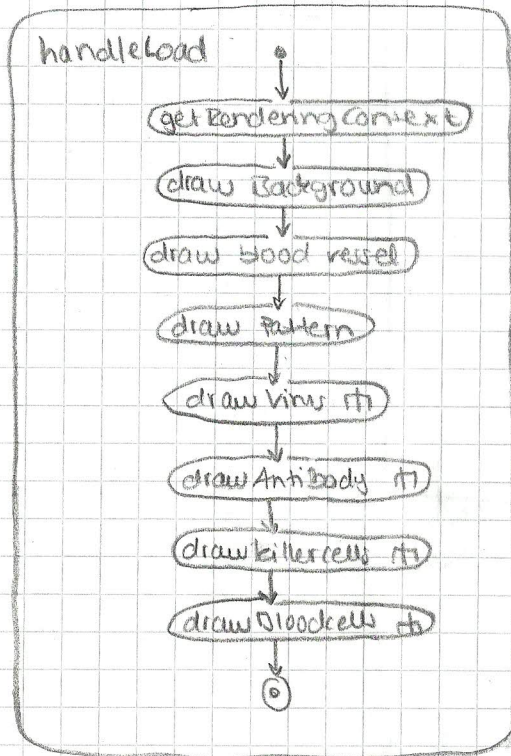 handleLoad
getRenderingContext
draw Background
draw blood vessel
draw Pattern
draw Virus
drawAntiBody
drawkillercells
drawBloodcells